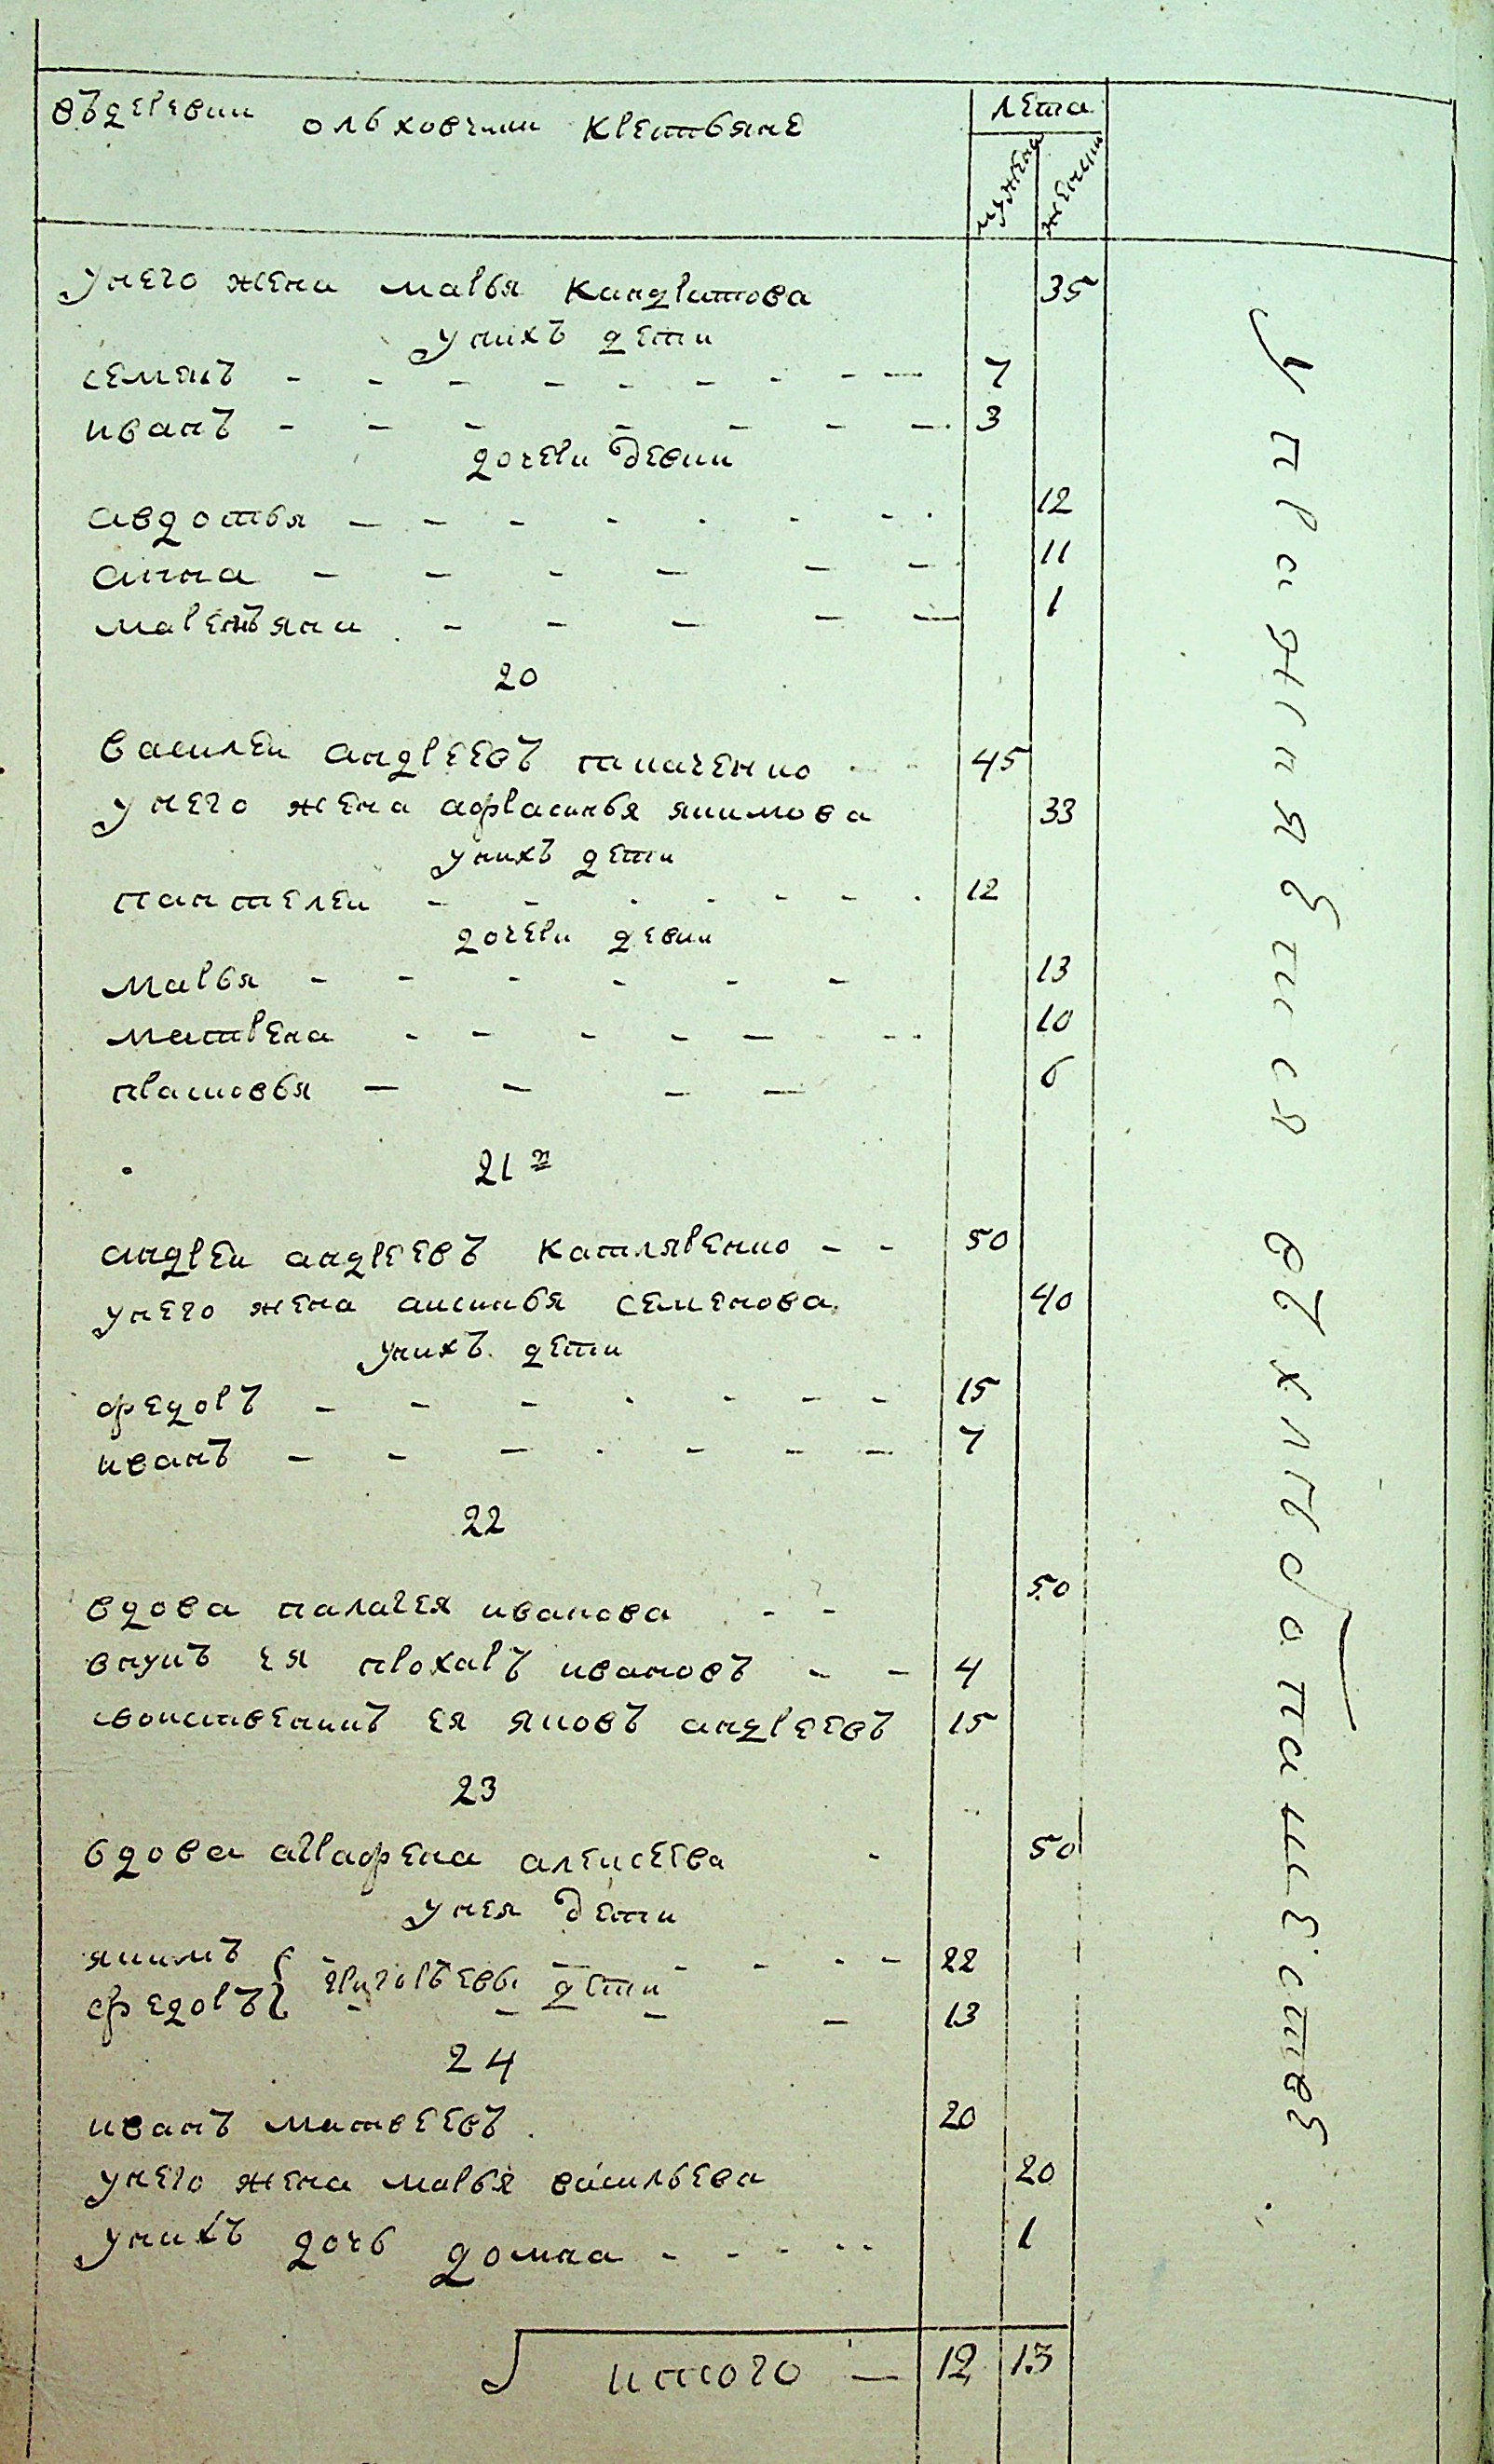 въдеревни ольховчики крестьяне
лета
мужеска
женски
унего жена марья кандратова 35
унихъ дети
семенъ 7
иванъ 3
дочери девки
авдотья 12
анна 11
маремъяна 1
20
василеи андреевъ ткаченко 45
унего жена афрасинья якимова 33
унихъ дети
пантелеи 12
дочери девки
марья 13
матрена 10
прасковья 6
21й
андреи андреевъ катляренко 50
унего жена аксинья семенова 40
унихъ дети
федоръ 15
иванъ 7
22
вдова палагея иванова 50
внукъ ея прохаръ ивановъ 4
своиственикъ ея яковъ андреевъ 15
23
вдова аграфена алексеева 50
унея дети
якимъ 22
григорьевы дети
федоръ 13
24
иванъ матвеевъ 20
унего жена марья васильева 20
унихъ дочь домна 1
итого — 12 13
упражняется в хлебопашестве